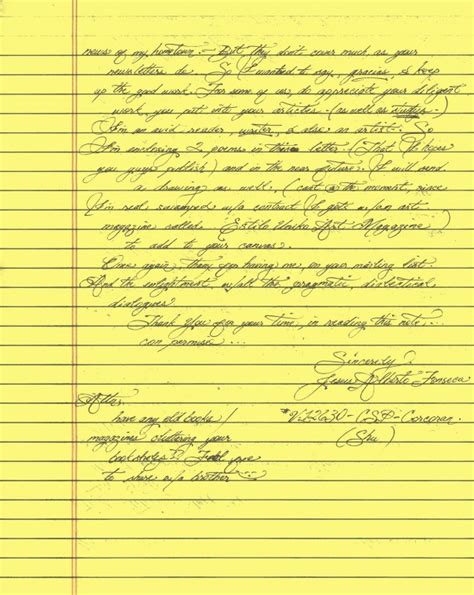 news of my hometown – But they don't cover much as your
newsletters do. So I wanted to say, gracias, & keep
up the good work. For some of us do appreciate your diligent
work you put into your articles. (as well as
I'm an avid reader, writer, & also an artist. So
I'm enclosing 2 poems in this letter. (That I hopes
you guys publish) and in the near future I will send
a drawing as well. (can't @ the moment, since
I'm real swamped w/a contract I gots w/an art
magazine called Estilo Uniko Art Magazine)
to add to your canvas.
Once again, thanx for having me, on your mailing list.
And the enlightment, w/all the pragmatic, dialectical
dialogues.
Thank You for your time, in reading this note...
con permiso...
Sincerely,
Jesus Alberto Fonseca
CSP-Corcoran
(Shu)
have any old books/
magazines cluttering your
bookshelves? Feel free
to share w/a brother